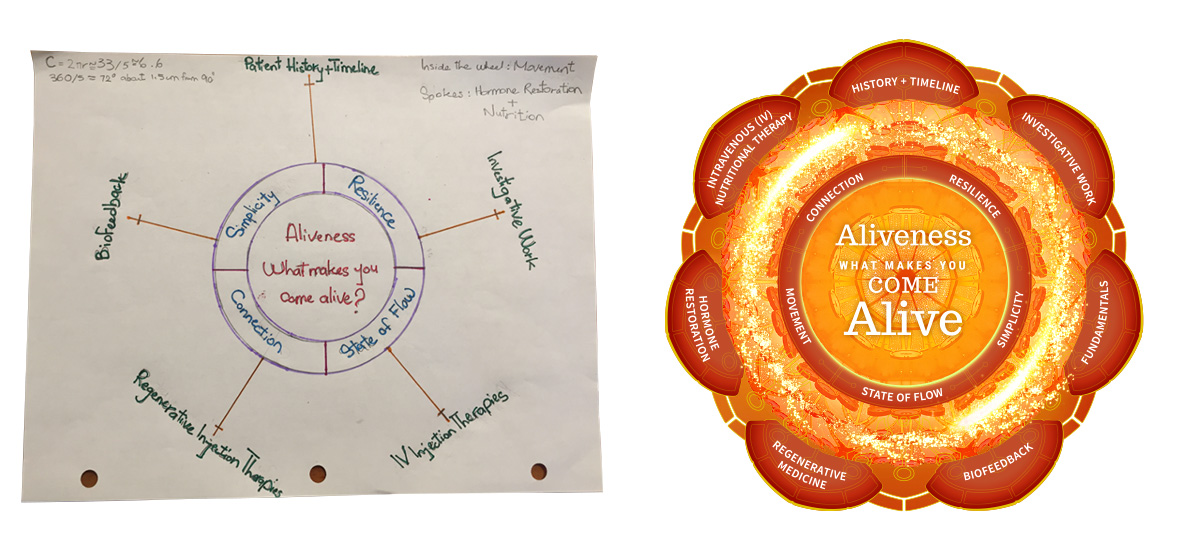 C = 2πr ≈ 33/5 ≈ 6.6
360/5 ≈ 72° about 1.5cm from 90°
Patient History+Timeline
Inside the wheel: Movement
Spokes: Hormone Restoration
+
Nutrition
Biofeedback
Investigative Work
Simplicity
Resilience
Aliveness
What makes you
come alive?
Connection
State of Flow
Regenerative Injection Therapies
IV Injection Therapies
HISTORY + TIMELINE
INTRAVENOUS (IV)
NUTRITIONAL THERAPY
INVESTIGATIVE WORK
CONNECTION
RESILIENCE
Aliveness
WHAT MAKES YOU
COME
Alive
HORMONE
RESTORATION
MOVEMENT
SIMPLICITY
FUNDAMENTALS
STATE OF FLOW
REGENERATIVE
MEDICINE
BIOFEEDBACK